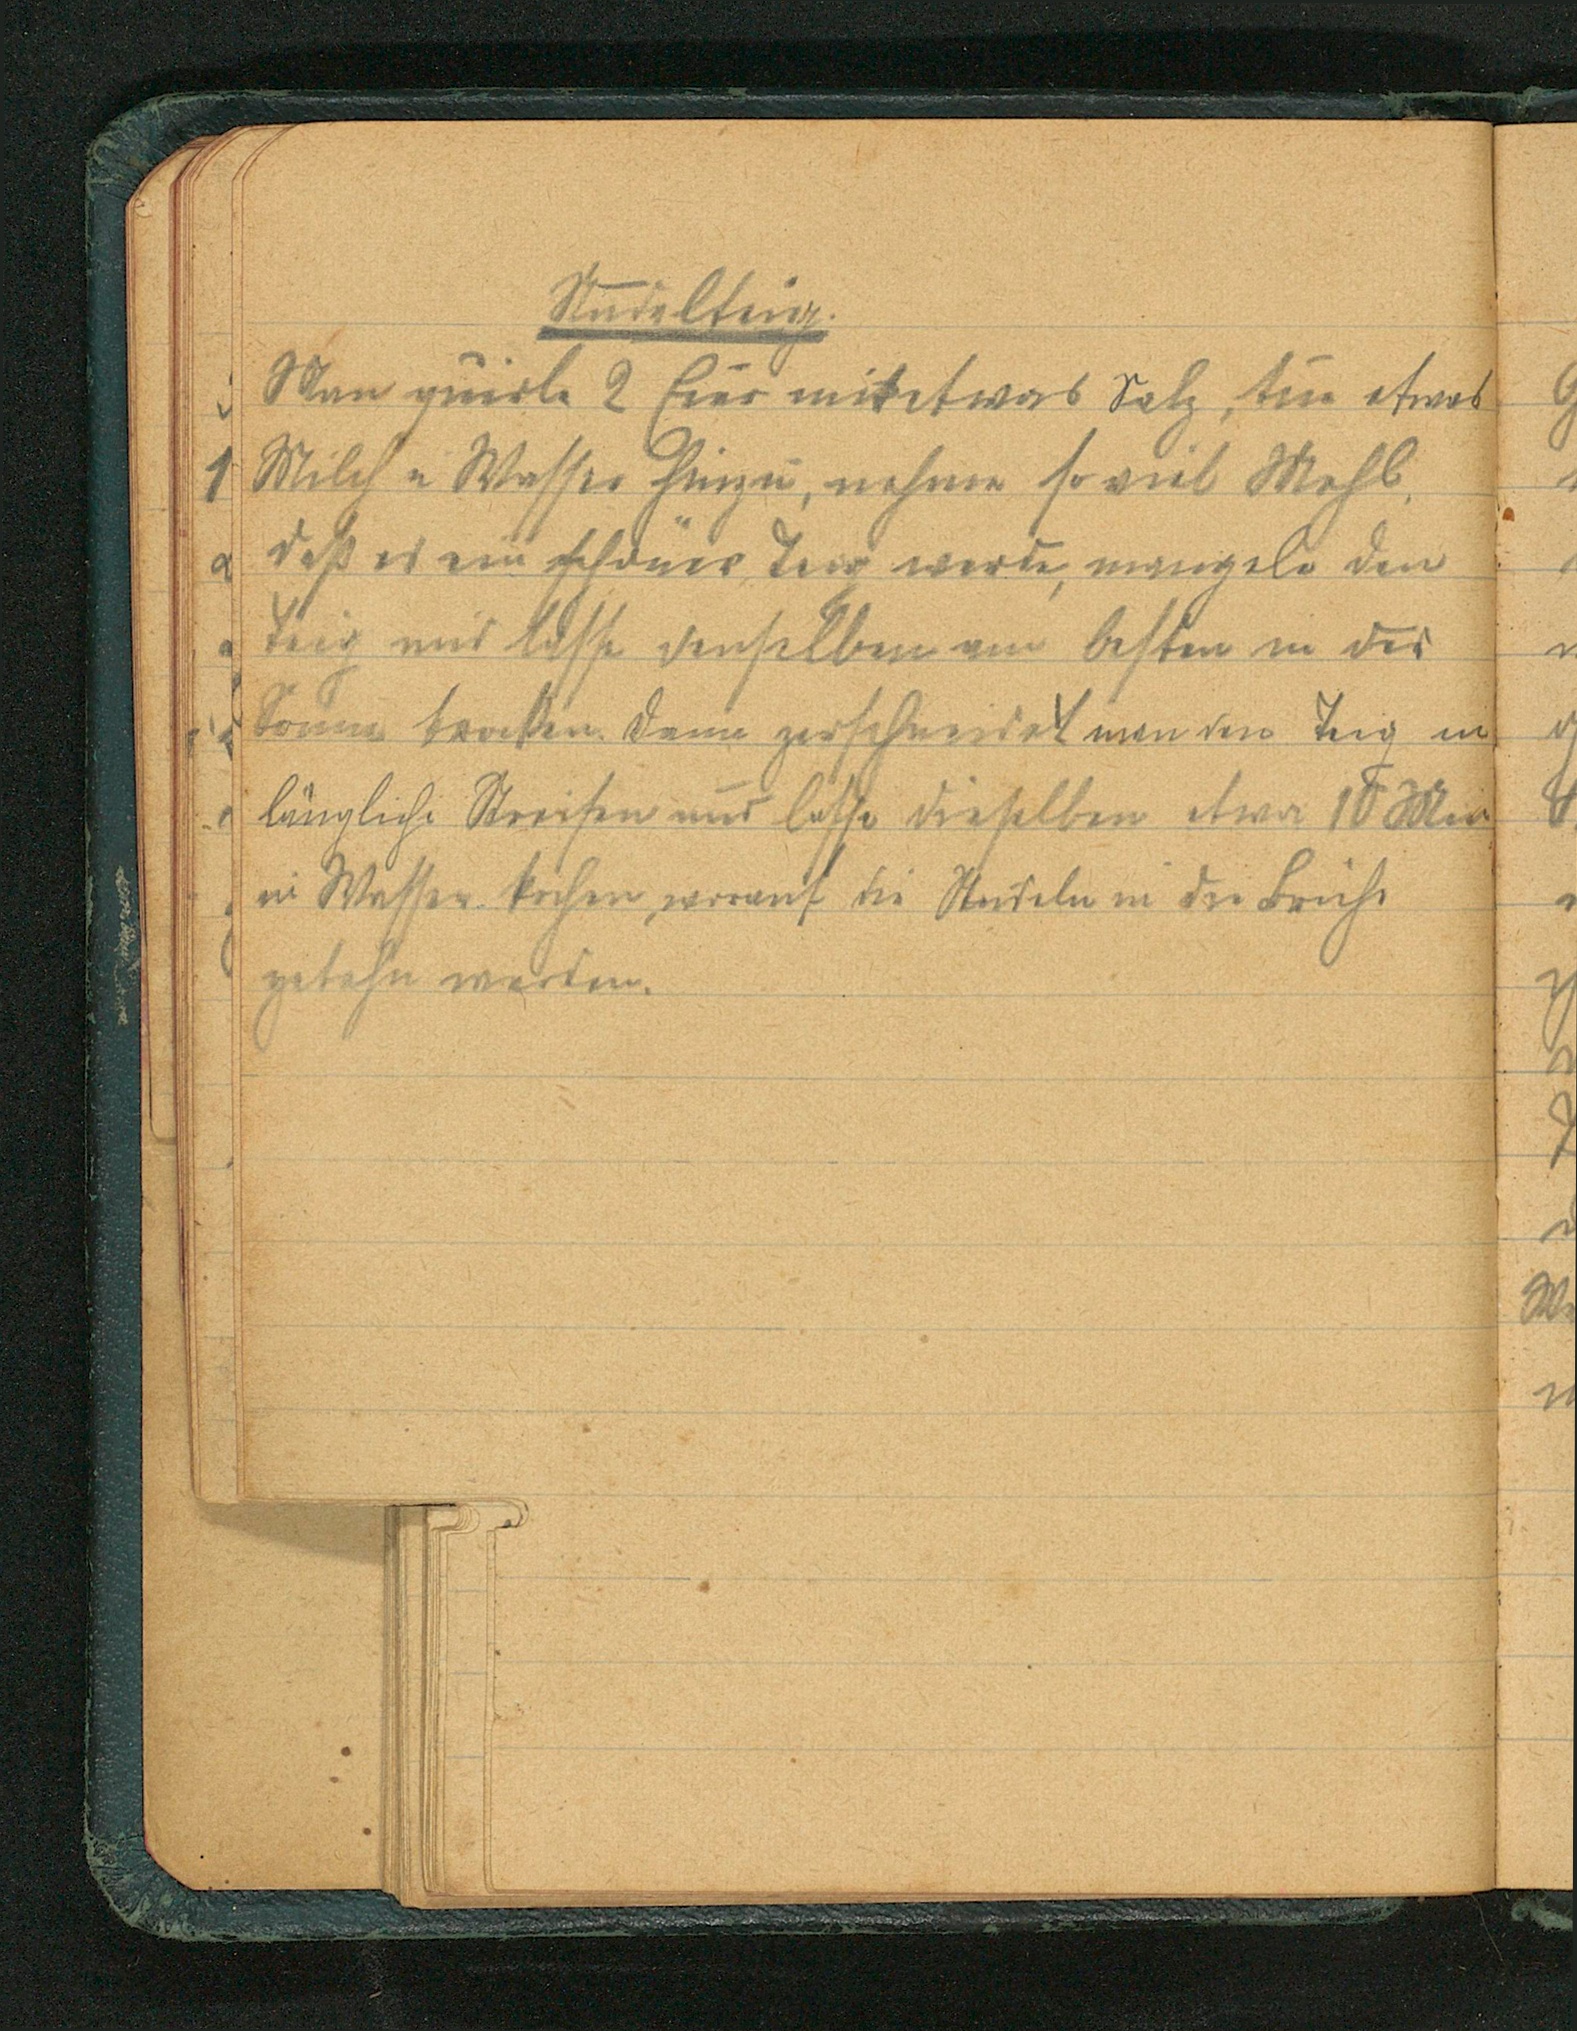 Nudelteig.
Man quirle 2 Eier mit etwas Salz, tue etwas
Milch u Wasser hinzu, nehme so viel Mehl,
daß es ein schöner Teig werde, mangele den
Teig und lasse denselben am besten in der
Sonne trocken. Dann zerschneidet man den Teig in
längliche Streifen und lasse dieselben etwa 10 Min
in Wasser kochen, worauf die Nudeln in die Brühe
getahn werden.